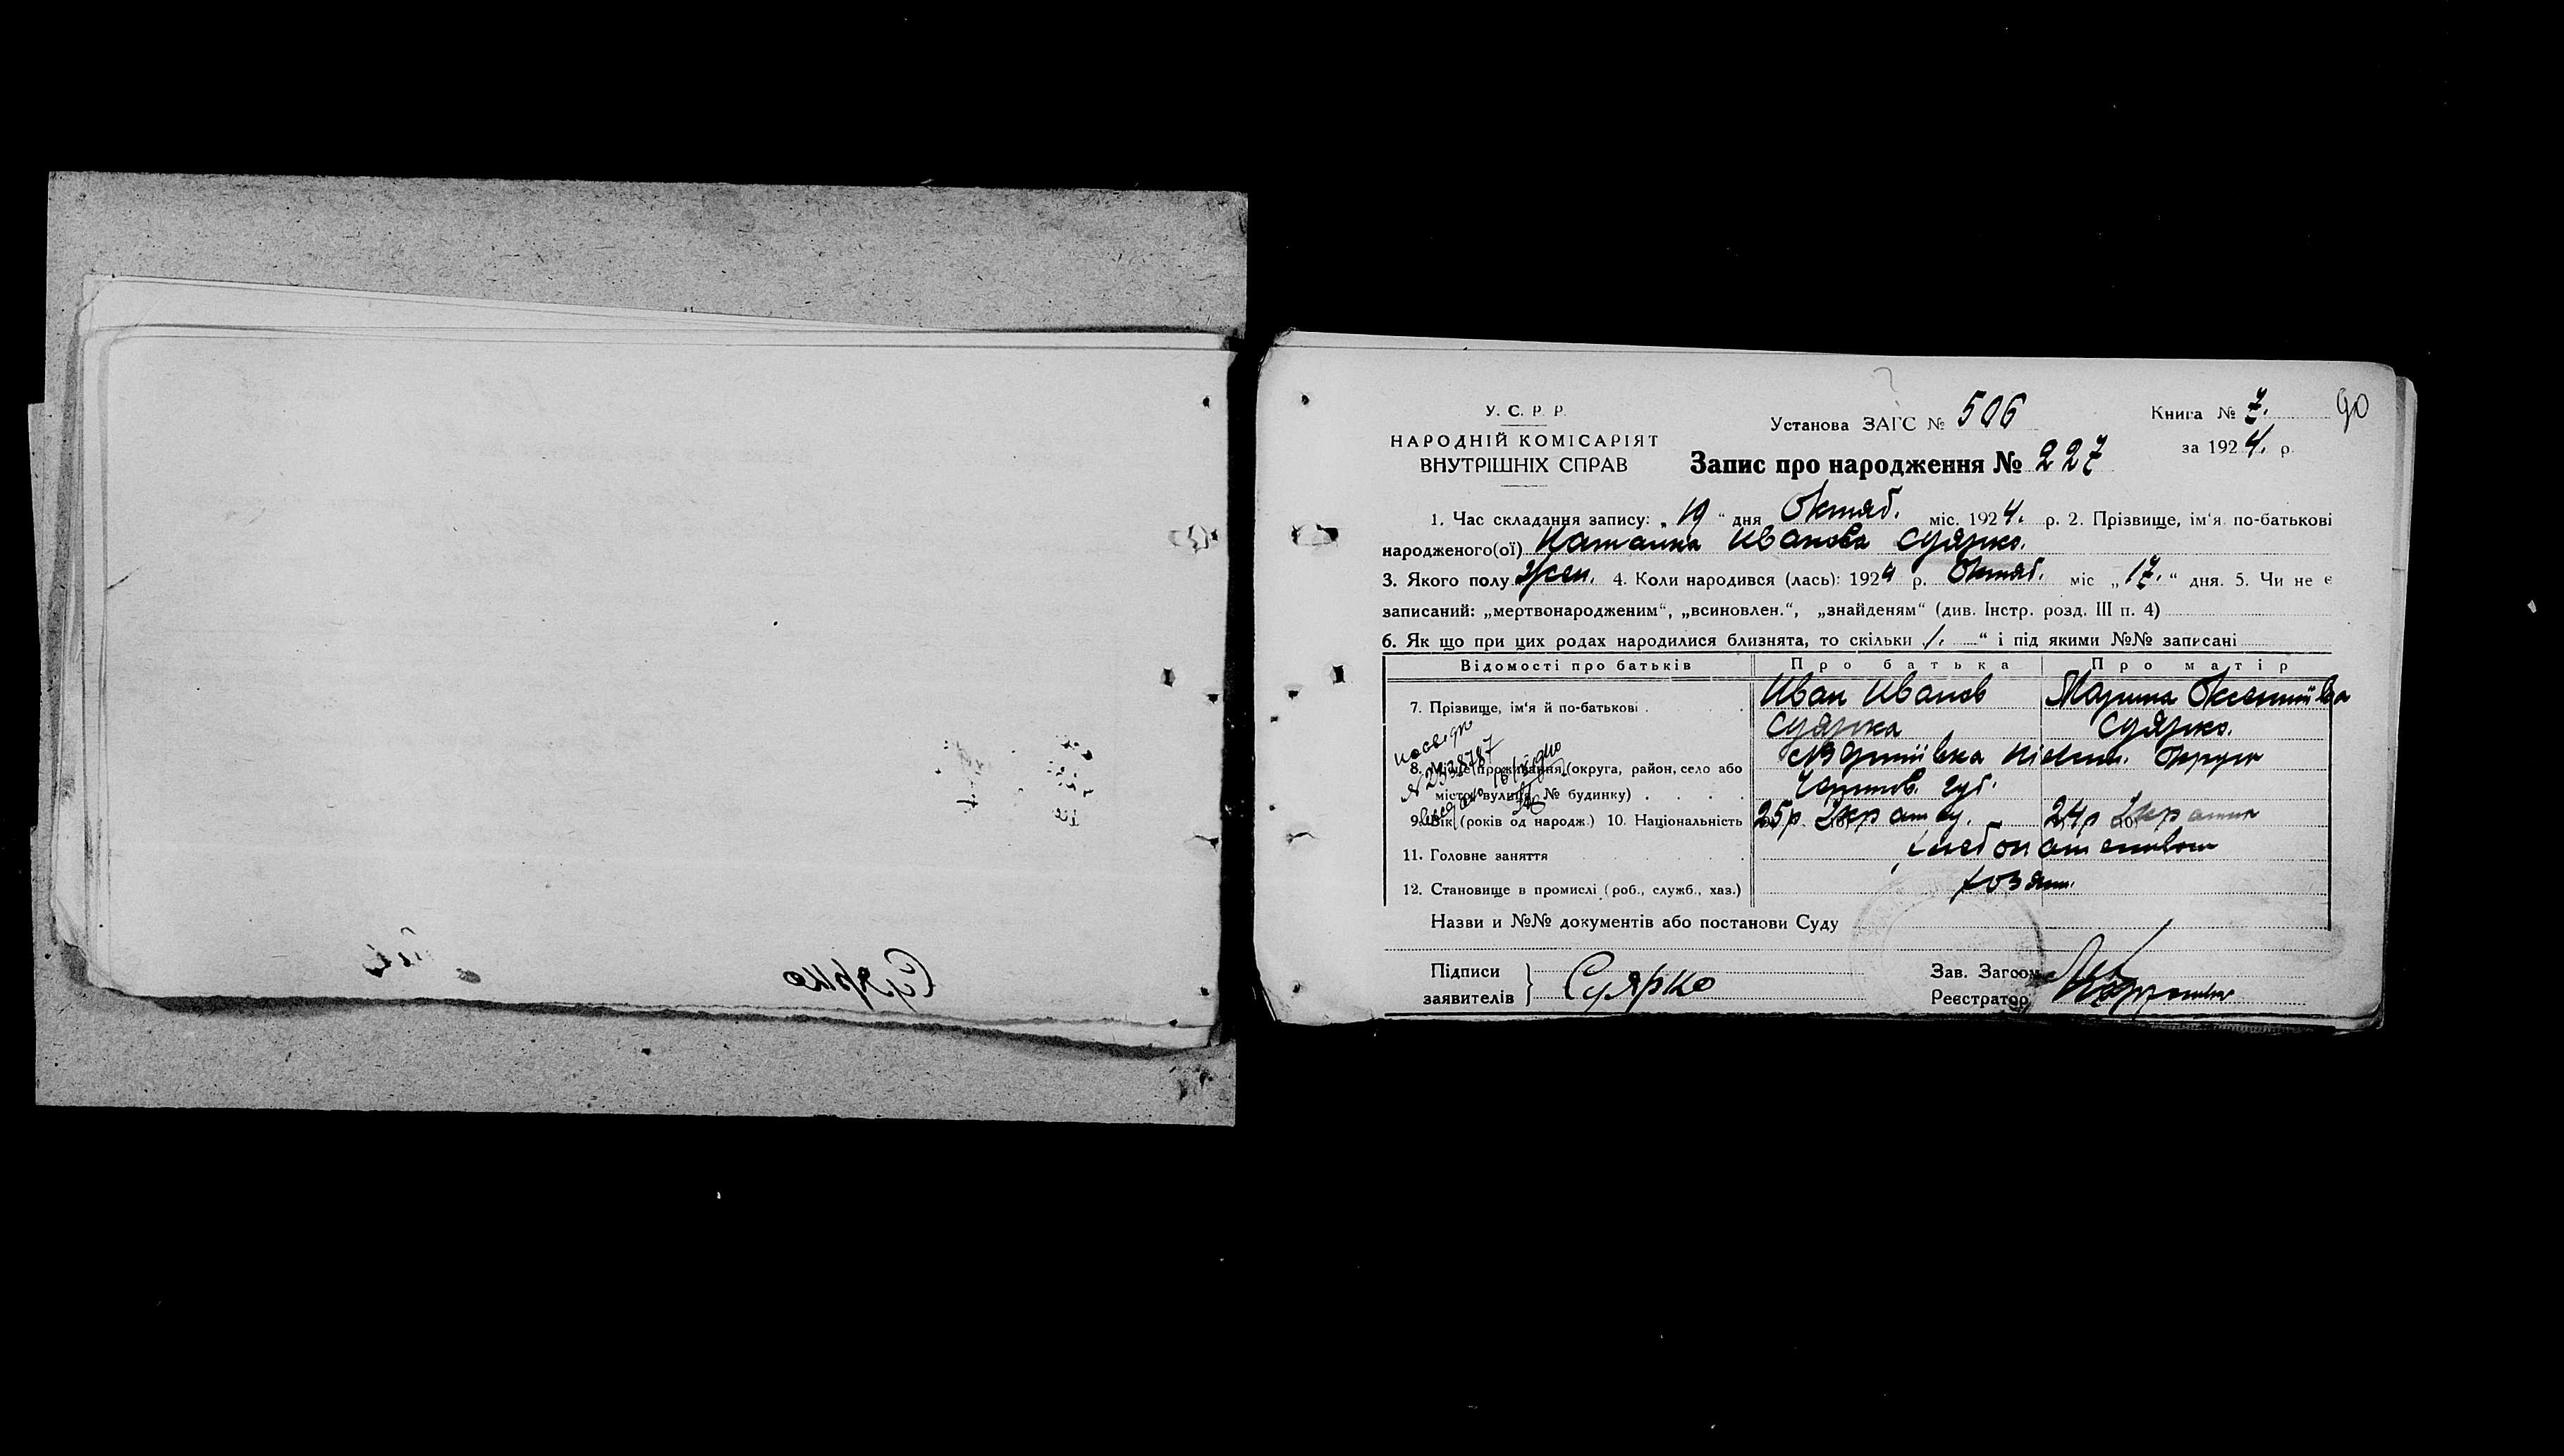 У. С. Р. Р.
НАРОДНІЙ КОМІСАРІЯТ
ВНУТРІШНІХ СПРАВ
Установа ЗАГС № 506
Книга № 7. 90
за 1924. р.
Запис про народження № 227
1. Час складання запису: „19“ дня Октяб. міс. 1924. р. 2. Прізвище, ім'я по-батькові
народженого(ої) Наталка Иванова Суярко.
3. Якого полу Жен. 4. Коли народився (лась): 1924 р. Октяб. міс „17.“ дня. 5. Чи не є
записаний: „мертвонародженим“, „всиновлен.“, „знайденям“ (див. Інстр. розд. III п. 4)
6. Як що при цих родах народилися близнята, то скільки 1. “ і під якими №№ записані
Відомості про батьків Про батька Про матір
7. Прізвище, ім'я й по-батькові Иван Иванов Марина
Суярка Суярко.
8. Місце проживання (округа, район, село або
місто, вулиця, № будинку)
9. Вік (років од народж.) 10. Національність 25р 24р
11. Головне заняття
12. Становище в промислі (роб., служб., хаз.) хозяин.
Назви и №№ документів або постанови Суду
Підписи
заявителів } Суярко
Зав. Загсом
Реєстратор